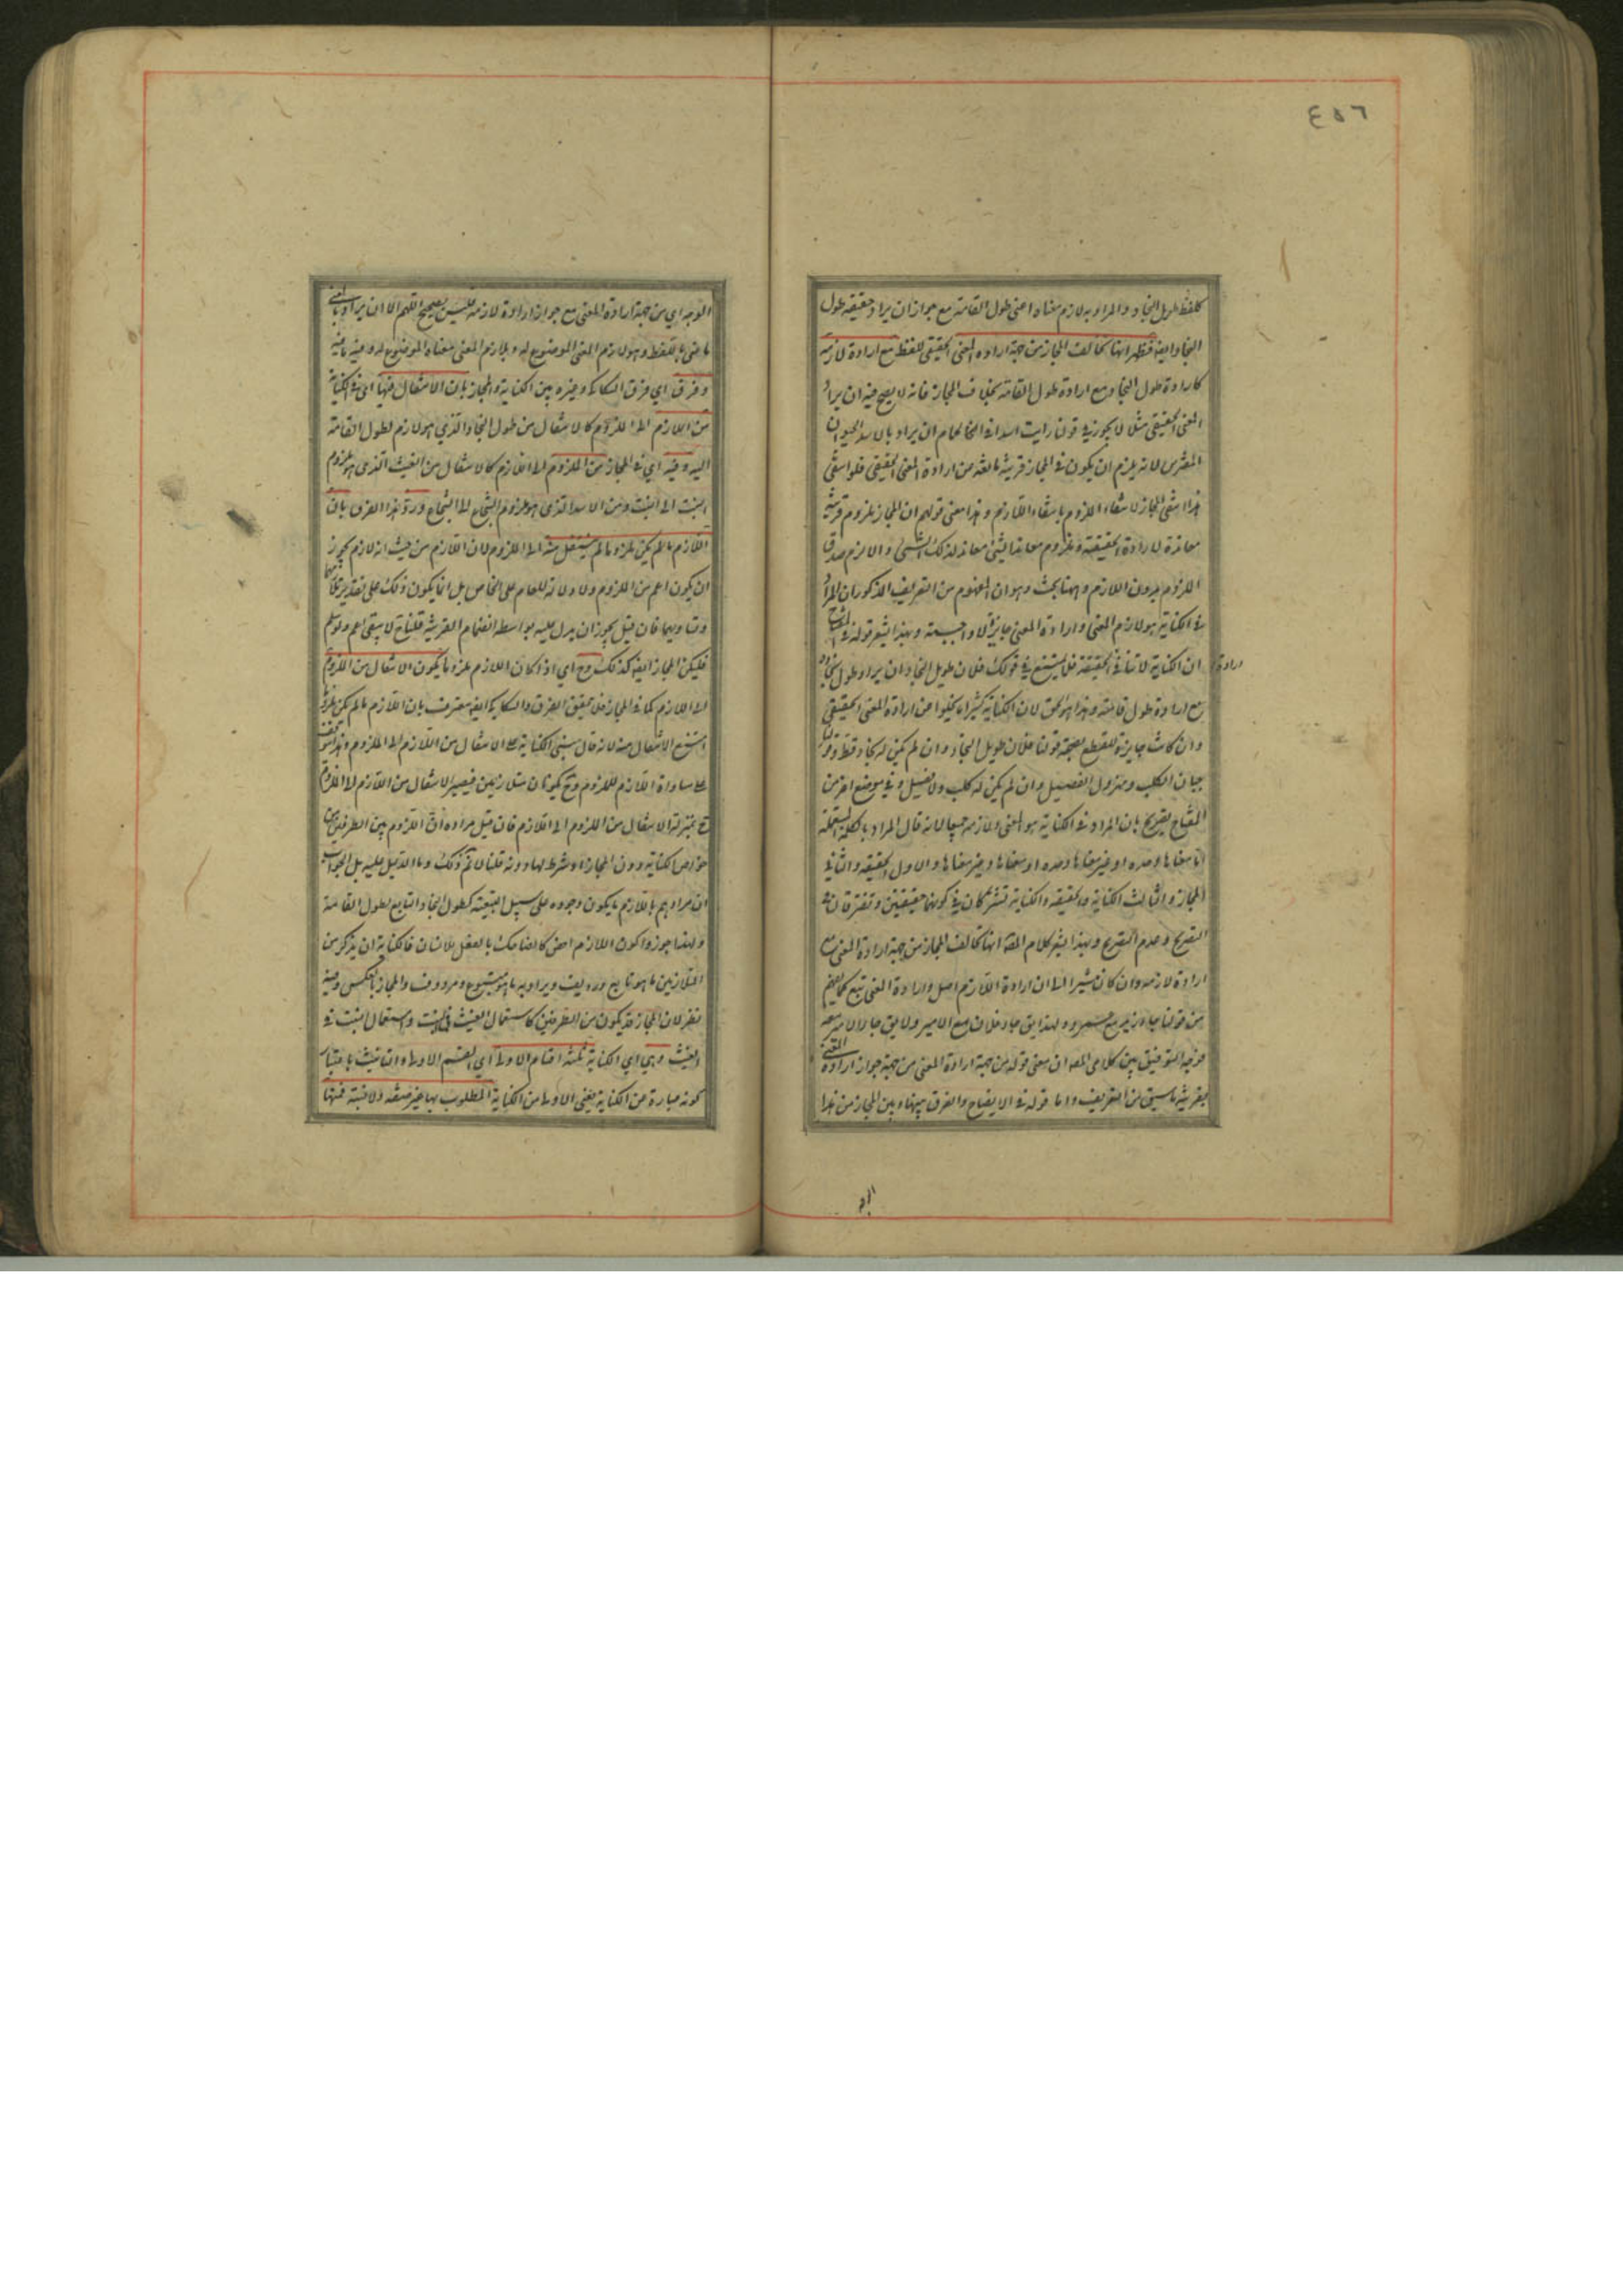 ٤٥٦
كلفظ طويل النجاد والمراد به لازم معناه اعنى طول القامة مع جواز ان يراد حقيقة طول
النجاد ايضا فظهر انها تخالف المجاز من جهة ارادة المعنى الحقيقى للفظ مع ارادة لازمه
كارادة طول النجاد مع ارادة طول القامة بخلاف المجاز فانه لا يصح فيه ان يراد
المعنى الحقيقى مثلا لا يجوز فى قولنا رايت اسدا فى الحمام ان يراد بالاسد الحيوان
المفترس لانه يلزم ان يكون فى المجاز قرينة مانعة من ارادة المعنى الحقيقى فلو انتفى
هذا انتفى المجاز لانتفاء الملزوم بانتفاء اللازم وهذا معنى قولهم ان المجاز ملزوم قرينة
معاندة لارادة الحقيقة وملزوم معاند الشئ معاند لذلك الشئ والا لزم صدق
الملزوم بدون اللازم وههنا بحث وهو ان المفهوم من التعريف المذكور ان المراد
فى الكناية هو لازم المعنى وارادة المعنى جايزة لا واجبة وبهذا يشعر قوله فى المفتاح
ان الكناية لا تنافى ارادة الحقيقة فلا يمتنع فى قولك فلان طويل النجاد ان يراد طول نجاده
مع ارادة طول قامته وهذا هو الحق لان الكناية كثيرا ما تخلوا عن ارادة المعنى الحقيقى
وان كانت جايزة للقطع بصحة قولنا فلان طويل النجاد وان لم يكن له نجاد قط وقولنا
جبان الكلب ومهزول الفصيل وان لم يكن له كلب ولا فصيل وفى موضع اخر من
المفتاح تصريح بان المراد فى الكناية هو المعنى ولازمه جميعا لانه قال المراد بالكلمة المستعملة
اما معناها وحده او غير معناها وحده او معناها وغير معناها والاول الحقيقة والثانى
المجاز والثالث الكناية والحقيقة والكناية تشتركان فى كونهما حقيقتين وتفترقان فى
التصريح وعدم التصريح وبهذا يشعر كلام المصة انها تخالف المجاز من جهة ارادة المعنى مع
ارادة لازمه وان كان مشيرا الى ان ارادة اللازم اصل وارادة المعنى تبع كما يفهم
من قولنا جاء زيد مع عمرو ولهذا يق جاء فلان مع الامير ولا يق جاء الامير معه
فوجه التوفيق بين كلامى المصه ان معنى قوله من جهة ارادة المعنى من جهة جواز ارادة المعنى
بقرينة ما سبق من التعريف واما قوله فى الايضاح والفرق بينها وبين المجاز من هذا
الوجه اى من جهة ارادة المعنى مع جواز ارادة لازمه فليس بصحيح اللهم الا ان يراد بالمعنى
ما عنى باللفظ وهو لازم المعنى الموضوع له وبلازم المعنى معناه الموضوع له وفيه ما فيه
وفرق اى فرق السكاكى وغيره بين الكناية والمجاز بان الانتقال فيها اى فى الكناية
من اللازم الى الملزوم كالانتقال من طول النجاد الذى هو لازم لطول القامة
اليه وفيه اى فى المجاز من الملزوم الى اللازم كالانتقال من الغيث الذى هو ملزوم
النبت الى النبت ومن الاسد الذى هو ملزوم الشجاع الى الشجاع ورد هذا الفرق بان
اللازم ما لم يكن ملزوما لم ينتقل منه الى الملزوم لان اللازم من حيث انه لازم يجوز
ان يكون اعم من الملزوم ولا دلالة للعام على الخاص بل انما يكون ذلك على تقدير تلازمهما
وتساويهما فان قيل يجوز ان يدل عليه بواسطة انضمام القرينة قلنا ح لا يبقى اعم ولو سلم
فليكن المجاز ايضا كذلك وح اى اذا كان اللازم ملزوما يكون الانتقال من الملزوم
الى اللازم كما فى المجاز فلا يتحقق الفرق والسكاكى ايضا معترف بان اللازم ما لم يكن ملزوما
امتنع الانتقال منه لانه قال مبنى الكناية على الانتقال من اللازم الى الملزوم وهذا يتوقف
على مساواة اللازم للملزوم وح يكونان متلازمين فيصير الانتقال من اللازم الى الملزوم
ح بمنزلة الانتقال من الملزوم الى اللازم فان قيل مراده ان اللزوم بين الطرفين من
خواص الكناية دون المجاز او شرط لها دونه قلنا لا نم ذلك وما الدليل عليه بل الجواب
ان مرادهم باللازم ما يكون وجوده على سبيل التبعية كطول النجاد التابع لطول القامة
ولهذا جوزوا كون اللازم اخص كالضاحك بالفعل للانسان فالكناية ان يذكر من
المتلازمين ما هو تابع ورديف ويراد به ما هو متبوع ومردوف والمجاز بالعكس وفيه
نظر لان المجاز قد يكون من الطرفين كاستعمال الغيث فى النبت واستعمال النبت فى
الغيث وهى اى الكناية ثلثة اقسام الاولى اى القسم الاول والتانيث باعتبار
كونه عبارة عن الكناية يعنى الاولى من الكناية المطلوب بها غير صفة ولا نسبة فمنها